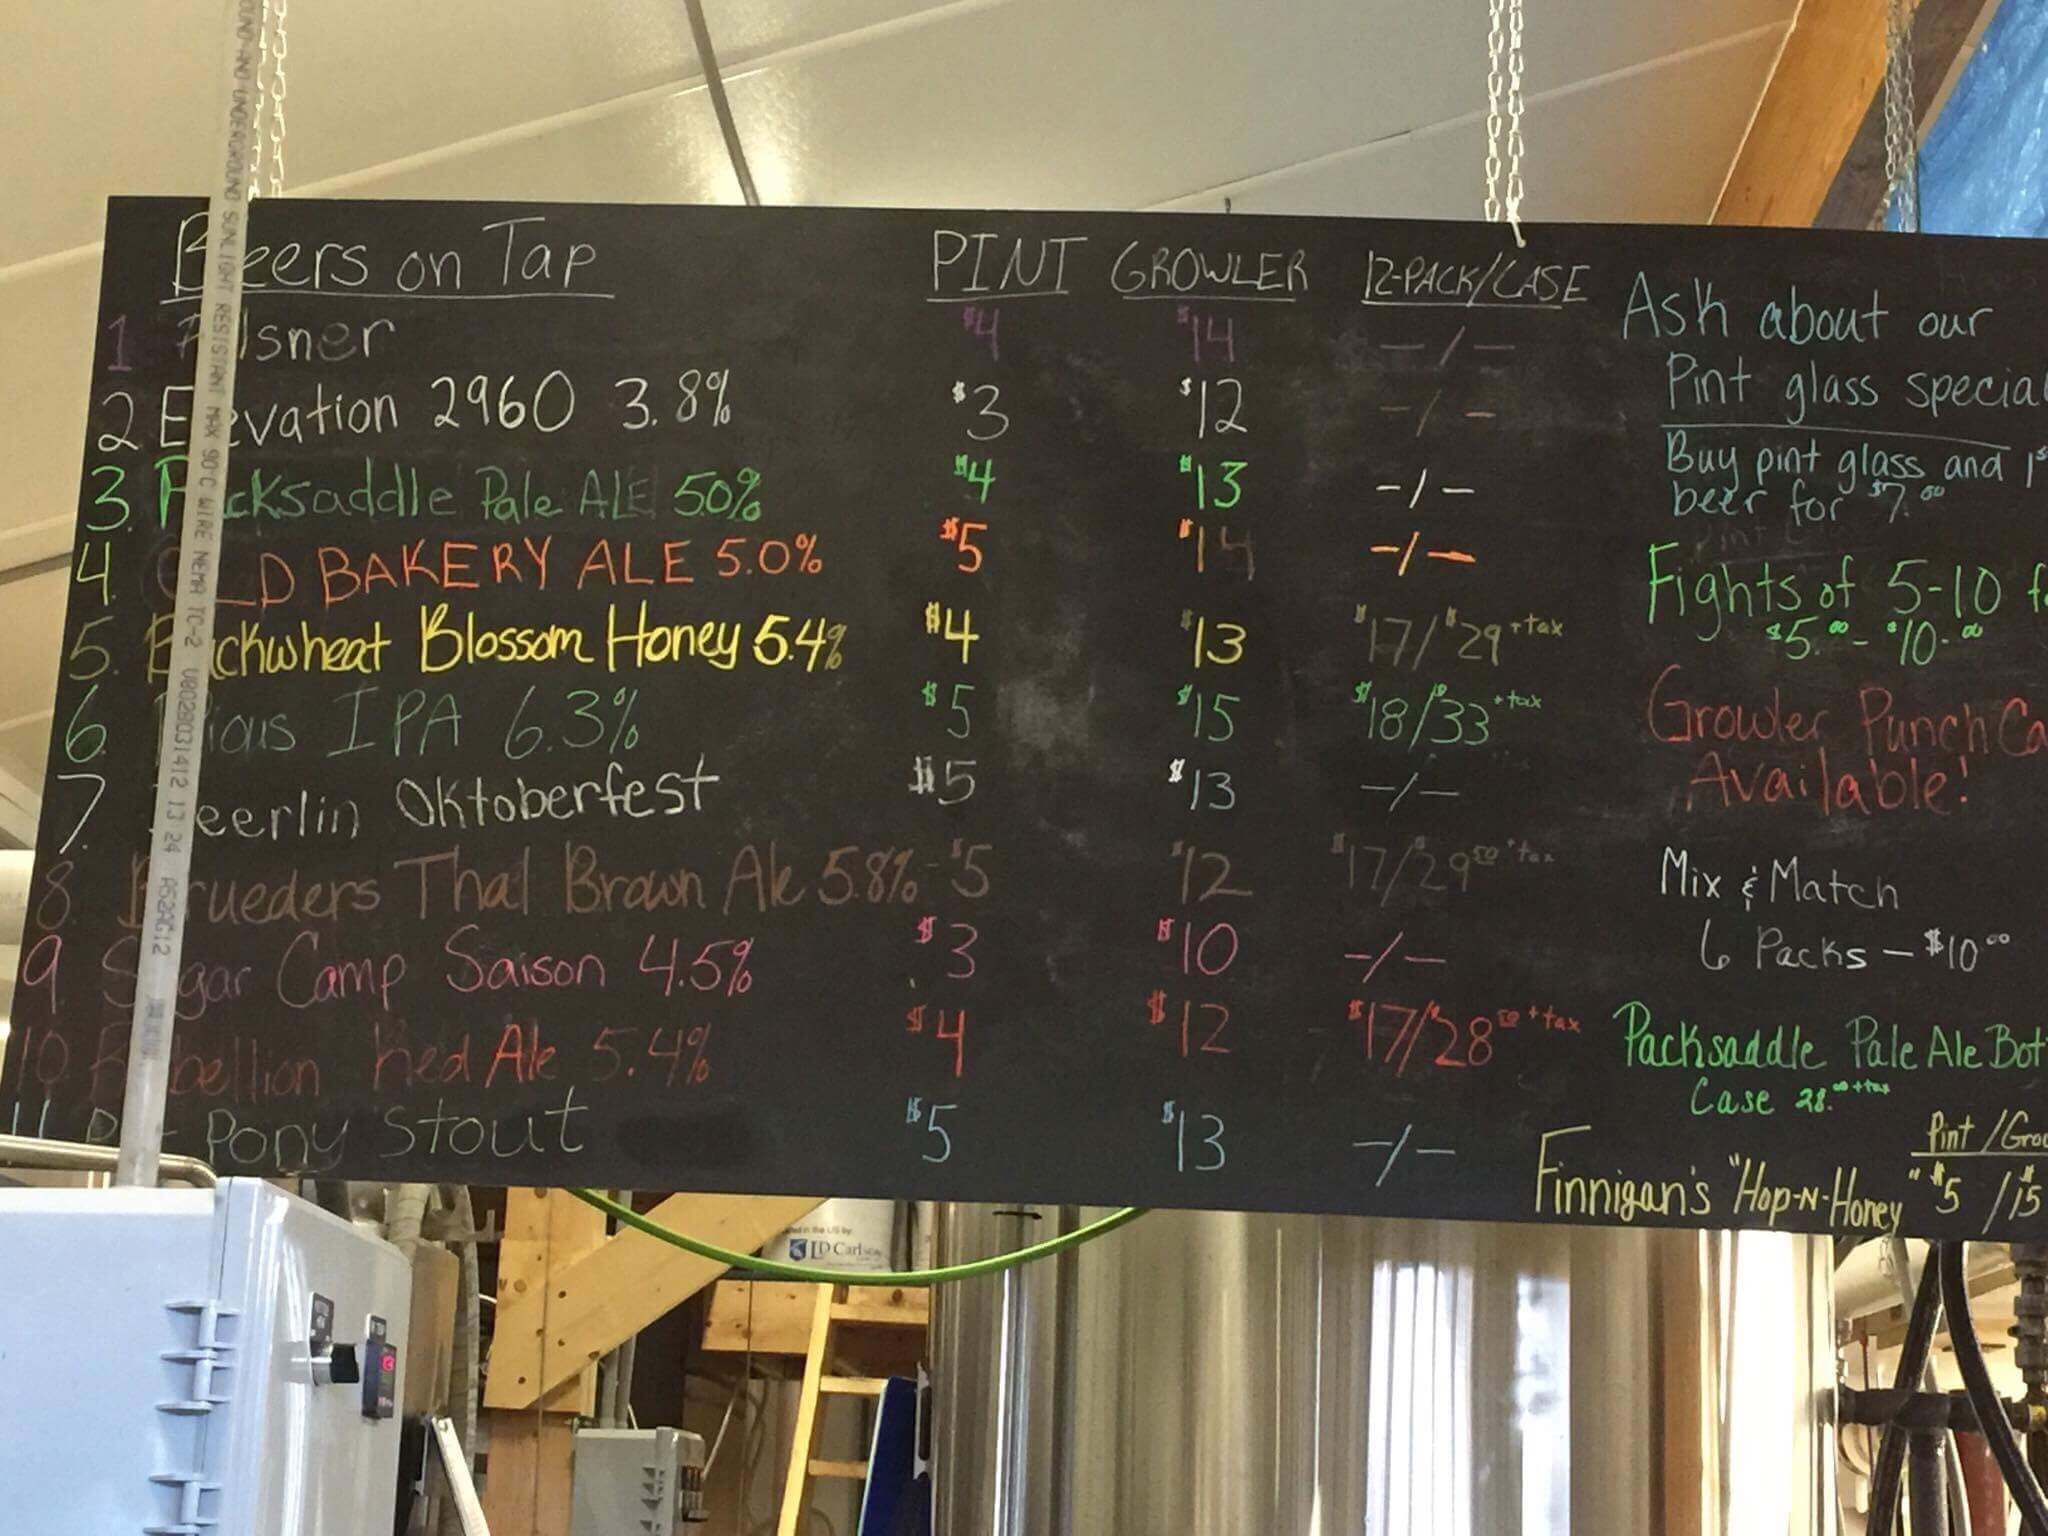 Beers on Tap PINT GROWLER 12-PACK/CASE
1 Pilsner $4 $14 -/-
2 Elevation 2960 3.8% $3 $12 -/-
3. Packsaddle Pale ALE 5.0% $4 $13 -/-
4. OLD BAKERY ALE 5.0% $5 $14 -/-
5. Buckwheat Blossom Honey 5.4% $4 $13 $17/$29 +tax
6. IPA 6.3% $5 $15 $18/$33 +tax
7. Beerlin Oktoberfest $5 $13 -/-
8. Brueders Thal Brown Ale 5.8% $5 $12 $17/$29 50 +tax
9. Sugar Camp Saison 4.5% $3 $10 -/-
10 Rebellion Red Ale 5.4% $4 $12 $17/$28 50 +tax
11 Pony Stout $5 $13 -/-
Ask about our
Pint glass special
Buy pint glass and 1st
beer for $7.00
Fights of 5-10 f
$5.00 - $10.00
Growler Punch Ca
Available!
Mix & Match
6 Packs - $10 00
Packsaddle Pale Ale Bot
Case 28.00 +tax
Pint / Gro
Finnigan's "Hop-N-Honey" $5 / $15
OUND-AND UNDERGROUND SUNLIGHT RESISTANT MAX 90°C WIRE NEMA TC-2
LD Carlson